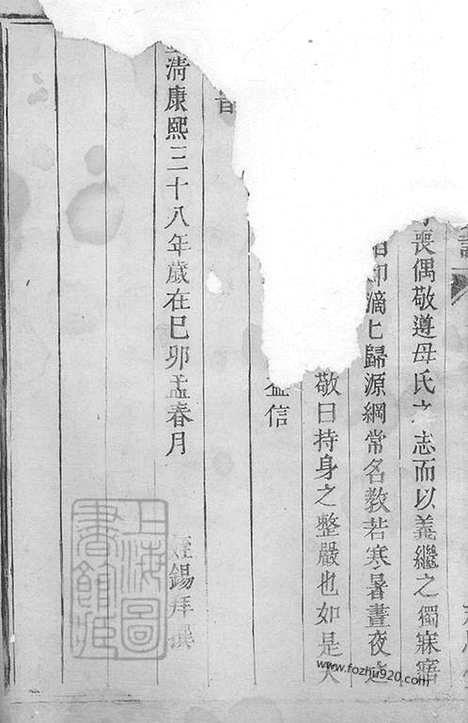 喪偶敬遵母氏之志而以義繼之獨寐寤
滴匕歸源綱常名教若寒暑晝夜
敬曰持身之整嚴也如是夫
益信
清康熙三十八年歲在巳卯孟春月
錫拜撰
上海圖書館藏
www.fozhu920.com